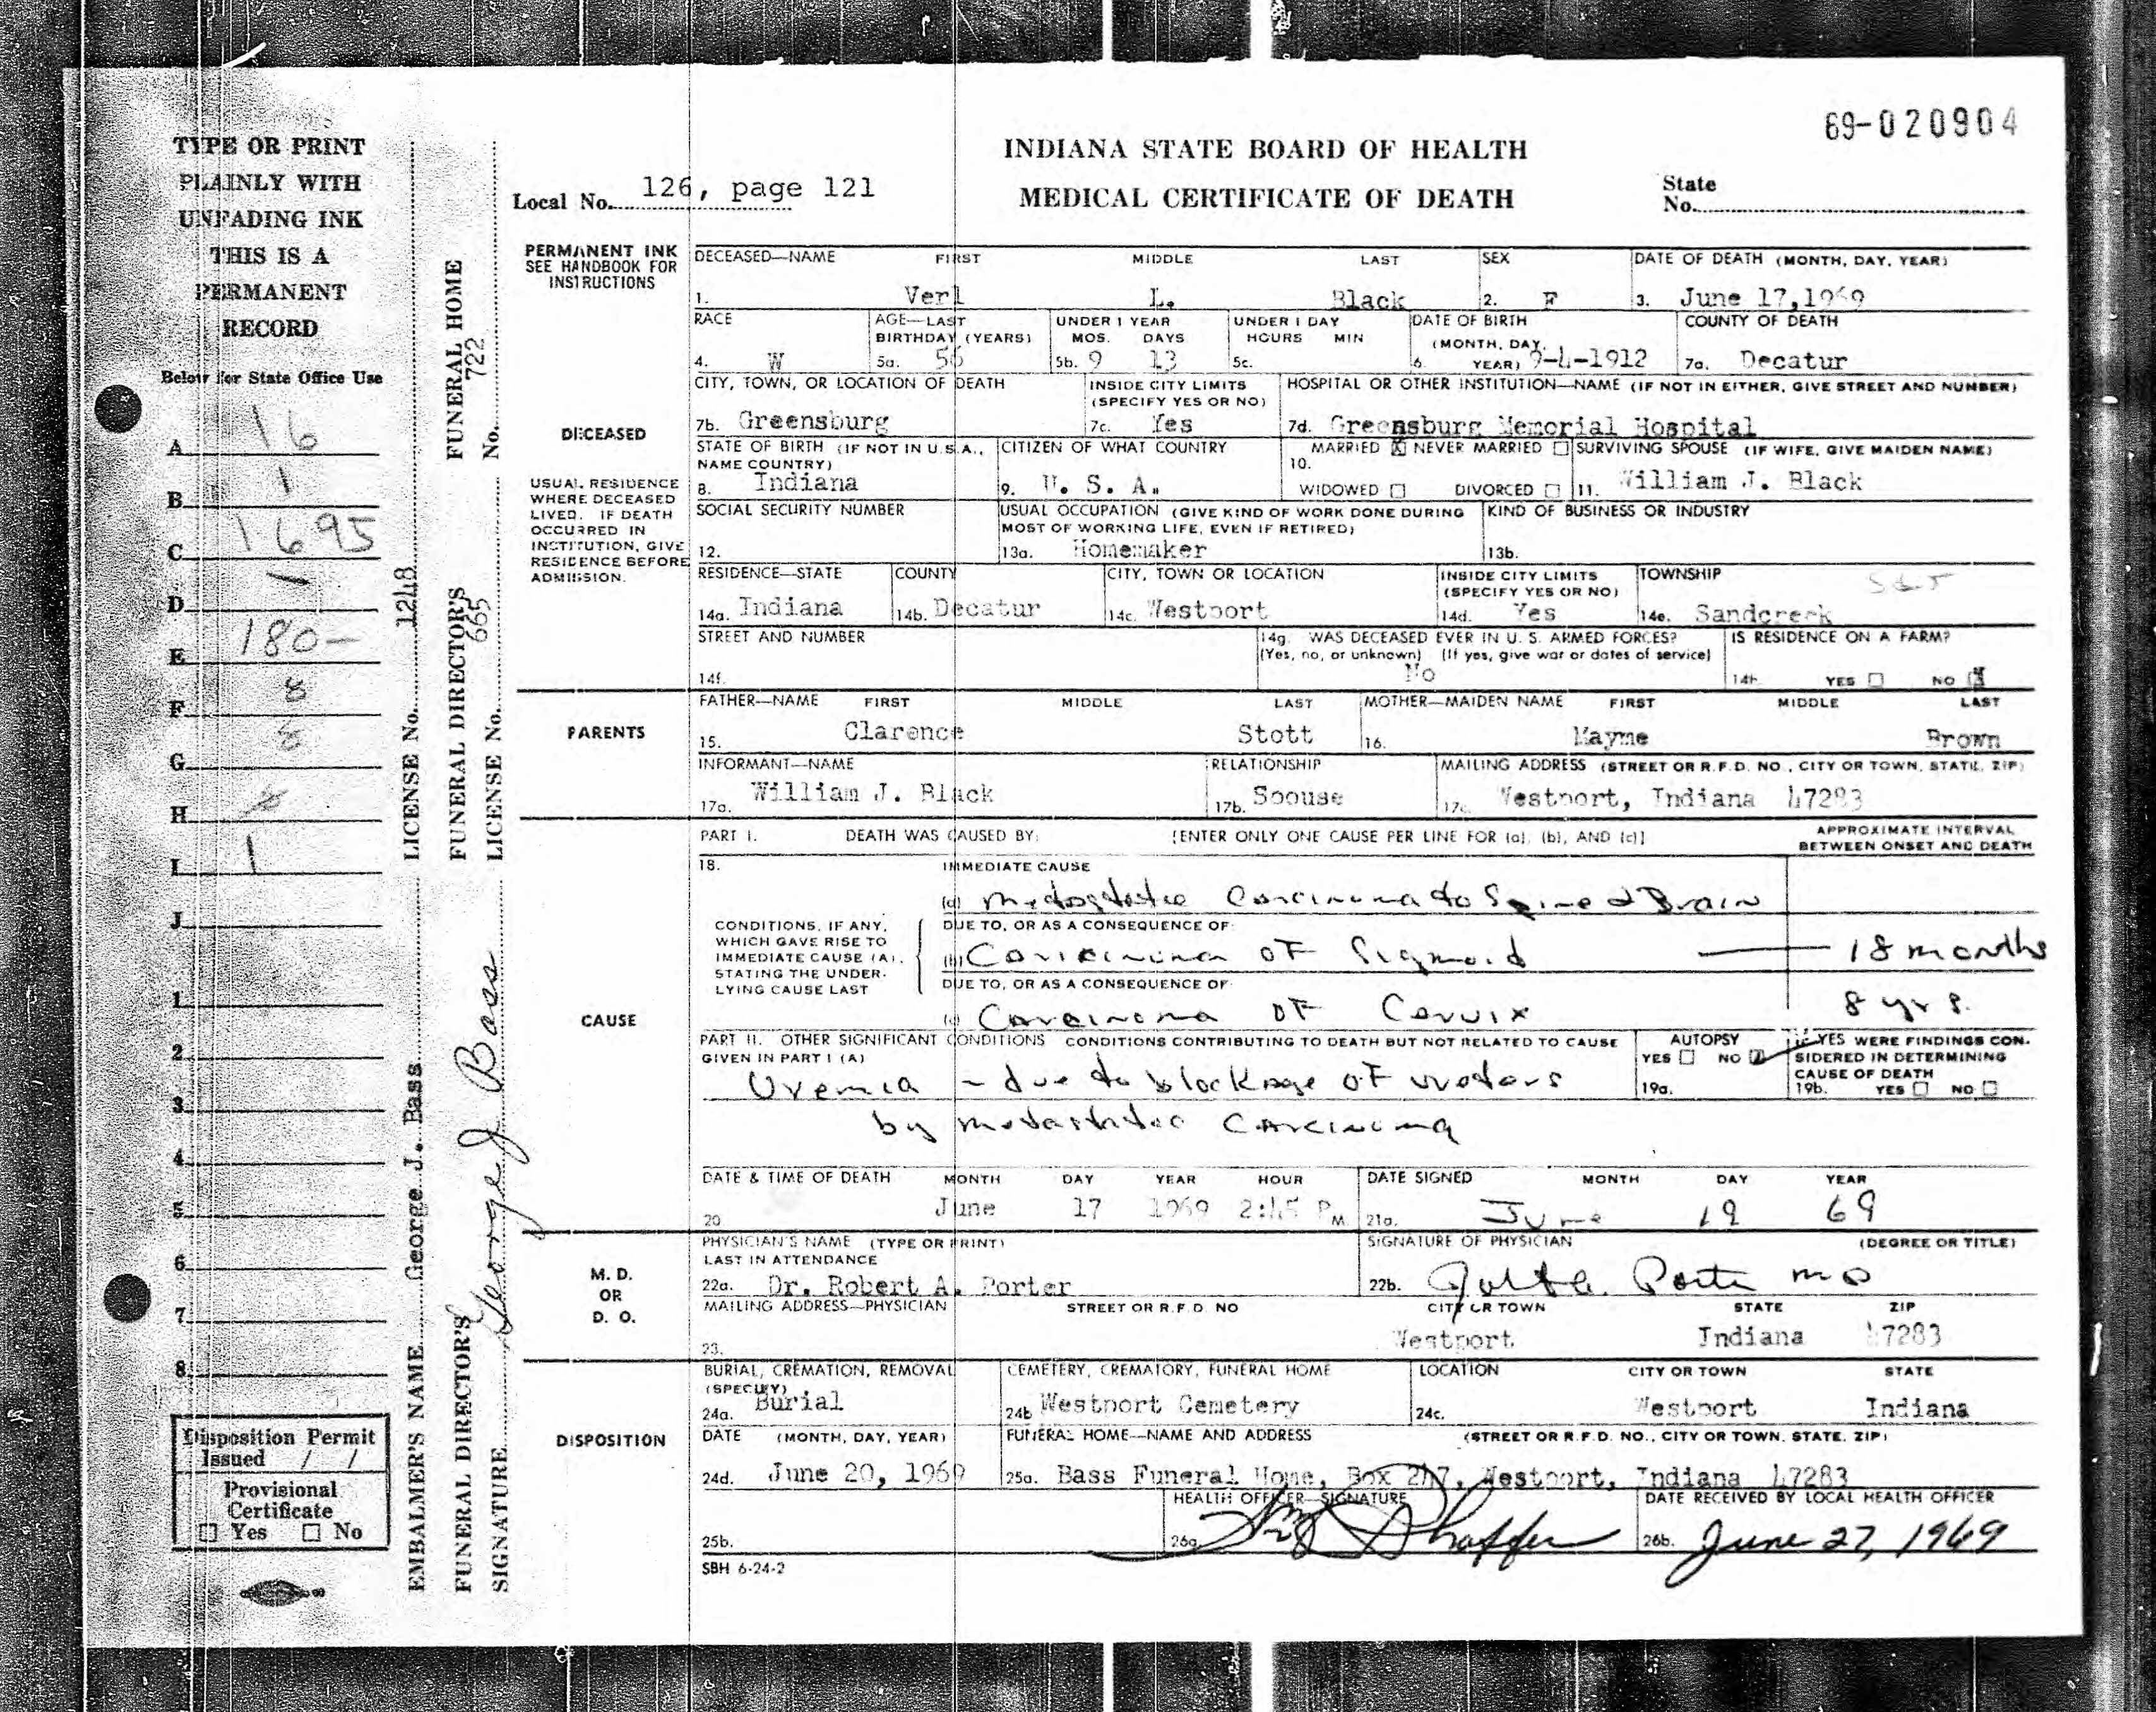 69-020904
TYPE OR PRINT
PLAINLY WITH
UNFADING INK
THIS IS A
PERMANENT
RECORD
Below for State Office Use
A 16
B 1
C 1695
D –
E 180-
F 8
G 8
H
I 1
J
1
2
3
4
5
6
7
8
Disposition Permit
Issued / /
Provisional
Certificate
☐ Yes ☐ No
EMBALMER'S NAME George J. Bass LICENSE No. 1248
FUNERAL DIRECTOR'S SIGNATURE George J Bass
FUNERAL DIRECTOR'S LICENSE No. 665
FUNERAL HOME No. 722
INDIANA STATE BOARD OF HEALTH
Local No. 126, page 121
MEDICAL CERTIFICATE OF DEATH
State
No.
PERMANENT INK
SEE HANDBOOK FOR
INSTRUCTIONS
DECEASED
USUAL RESIDENCE
WHERE DECEASED
LIVED. IF DEATH
OCCURRED IN
INSTITUTION, GIVE
RESIDENCE BEFORE
ADMISSION.
DECEASED—NAME FIRST MIDDLE LAST SEX DATE OF DEATH (MONTH, DAY, YEAR)
1. Verl L. Black 2. F 3. June 17,1969
RACE AGE—LAST BIRTHDAY (YEARS) UNDER 1 YEAR MOS. DAYS UNDER 1 DAY HOURS MIN DATE OF BIRTH (MONTH, DAY, YEAR) COUNTY OF DEATH
4. W 5a. 56 5b. 9 13 5c. 6. 9-4-1912 7a. Decatur
CITY, TOWN, OR LOCATION OF DEATH INSIDE CITY LIMITS (SPECIFY YES OR NO) HOSPITAL OR OTHER INSTITUTION—NAME (IF NOT IN EITHER, GIVE STREET AND NUMBER)
7b. Greensburg 7c. Yes 7d. Greensburg Memorial Hospital
STATE OF BIRTH (IF NOT IN U.S.A., NAME COUNTRY) CITIZEN OF WHAT COUNTRY 10. MARRIED ☒ NEVER MARRIED ☐ WIDOWED ☐ DIVORCED ☐ SURVIVING SPOUSE (IF WIFE, GIVE MAIDEN NAME)
8. Indiana 9. U. S. A. 11. William J. Black
SOCIAL SECURITY NUMBER USUAL OCCUPATION (GIVE KIND OF WORK DONE DURING MOST OF WORKING LIFE, EVEN IF RETIRED) KIND OF BUSINESS OR INDUSTRY
12. 13a. Homemaker 13b.
RESIDENCE—STATE COUNTY CITY, TOWN OR LOCATION INSIDE CITY LIMITS (SPECIFY YES OR NO) TOWNSHIP
14a. Indiana 14b. Decatur 14c. Westport 14d. Yes 14e. Sandcreek
STREET AND NUMBER 14g. WAS DECEASED EVER IN U. S. ARMED FORCES? IS RESIDENCE ON A FARM?
(Yes, no, or unknown) (If yes, give war or dates of service)
14f. No 14h. YES ☐ NO ☒
PARENTS
FATHER—NAME FIRST MIDDLE LAST MOTHER—MAIDEN NAME FIRST MIDDLE LAST
15. Clarence Stott 16. Mayme Brown
INFORMANT—NAME RELATIONSHIP MAILING ADDRESS (STREET OR R.F.D. NO., CITY OR TOWN, STATE, ZIP)
17a. William J. Black 17b. Spouse 17c. Westport, Indiana 47283
CAUSE
PART I. DEATH WAS CAUSED BY: [ENTER ONLY ONE CAUSE PER LINE FOR (a), (b), AND (c)] APPROXIMATE INTERVAL BETWEEN ONSET AND DEATH
18. IMMEDIATE CAUSE
(a) Metastatic Carcinoma to Spine & Brain
CONDITIONS, IF ANY,
WHICH GAVE RISE TO
IMMEDIATE CAUSE (A),
STATING THE UNDER-
LYING CAUSE LAST
DUE TO, OR AS A CONSEQUENCE OF:
(b) Carcinoma of Sigmoid — 18 months
DUE TO, OR AS A CONSEQUENCE OF:
(c) Carcinoma of Cervix 8 yrs.
PART II. OTHER SIGNIFICANT CONDITIONS CONDITIONS CONTRIBUTING TO DEATH BUT NOT RELATED TO CAUSE GIVEN IN PART I (A)
Uremia - due to blockage of ureters
by metastatic carcinoma
AUTOPSY YES ☐ NO ☑ 19a.
IF YES WERE FINDINGS CONSIDERED IN DETERMINING CAUSE OF DEATH
19b. YES ☐ NO ☐
DATE & TIME OF DEATH MONTH DAY YEAR HOUR DATE SIGNED MONTH DAY YEAR
20. June 17 1969 2:45 P M. 21a. June 19 69
M. D.
OR
D. O.
PHYSICIAN'S NAME (TYPE OR PRINT) LAST IN ATTENDANCE SIGNATURE OF PHYSICIAN (DEGREE OR TITLE)
22a. Dr. Robert A. Porter 22b. Porter MD
MAILING ADDRESS—PHYSICIAN STREET OR R.F.D. NO CITY OR TOWN STATE ZIP
23. Westport Indiana 47283
DISPOSITION
BURIAL, CREMATION, REMOVAL (SPECIFY) CEMETERY, CREMATORY, FUNERAL HOME LOCATION CITY OR TOWN STATE
24a. Burial 24b Westport Cemetery 24c. Westport Indiana
DATE (MONTH, DAY, YEAR) FUNERAL HOME—NAME AND ADDRESS (STREET OR R.F.D. NO., CITY OR TOWN, STATE, ZIP)
24d. June 20, 1969 25a. Bass Funeral Home, Box 247, Westport, Indiana 47283
HEALTH OFFICER—SIGNATURE DATE RECEIVED BY LOCAL HEALTH OFFICER
25b. 26a. Shaffer 26b. June 27, 1969
SBH 6-24-2